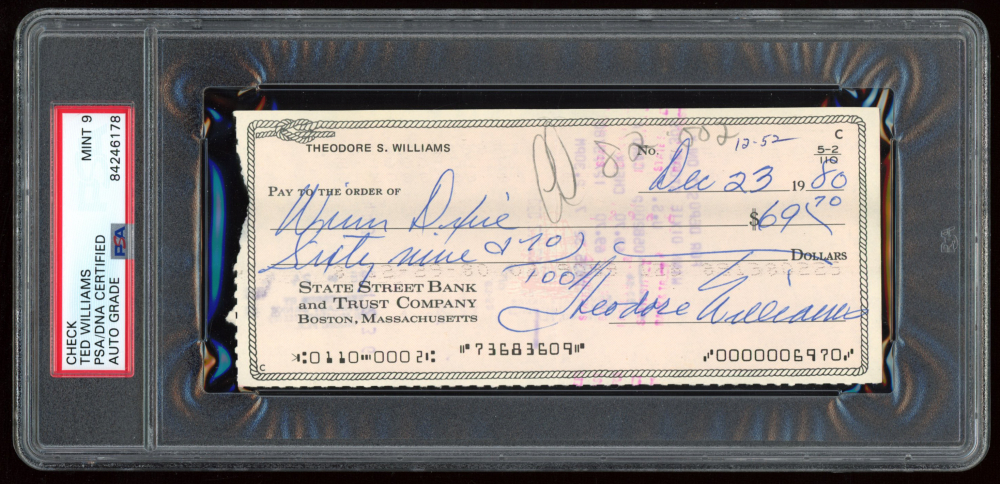 CHECK
TED WILLIAMS
PSA/DNA CERTIFIED
AUTO GRADE
MINT 9
84246178
PSA
THEODORE S. WILLIAMS
No. 12-52
C
5-2
110
Dec 23 19 80
PAY TO THE ORDER OF
Winn Dixie $69 70
Sixty nine & 70/100 DOLLARS
STATE STREET BANK
AND TRUST COMPANY
BOSTON, MASSACHUSETTS
Theodore Williams
⑆0110⑉0002⑆ ⑈73683609⑈ ⑈0000006970⑈
C